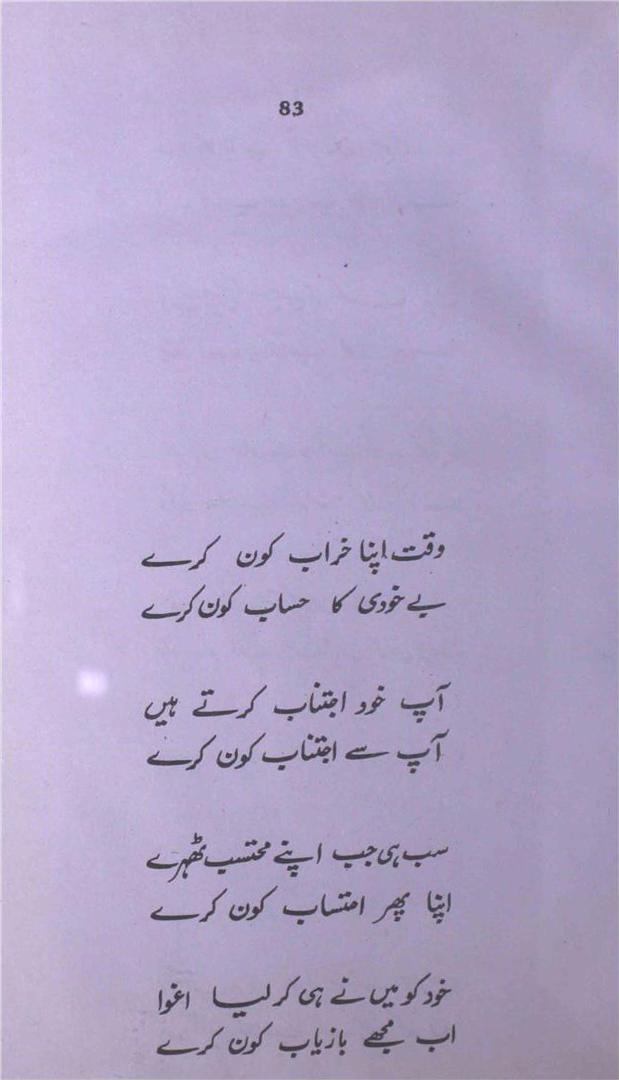 83
وقت اپنا خراب کون کرے
بے خودی کا حساب کون کرے
آپ خود اجتناب کرتے ہیں
آپ سے اجتناب کون کرے
سب ہی جب اپنے محتسب ٹھہرے
اپنا پھر احتساب کون کرے
خود کو میں نے ہی کر لیا اغوا
اب مجھے بازیاب کون کرے